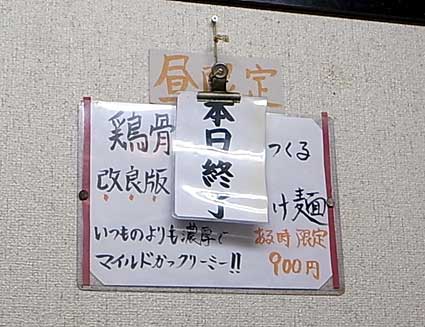 昼限定
本日終了
鶏骨 つくる
改良版 け麺
いつものよりも濃厚で ある時限定
マイルドかつクリーミー!! 900円